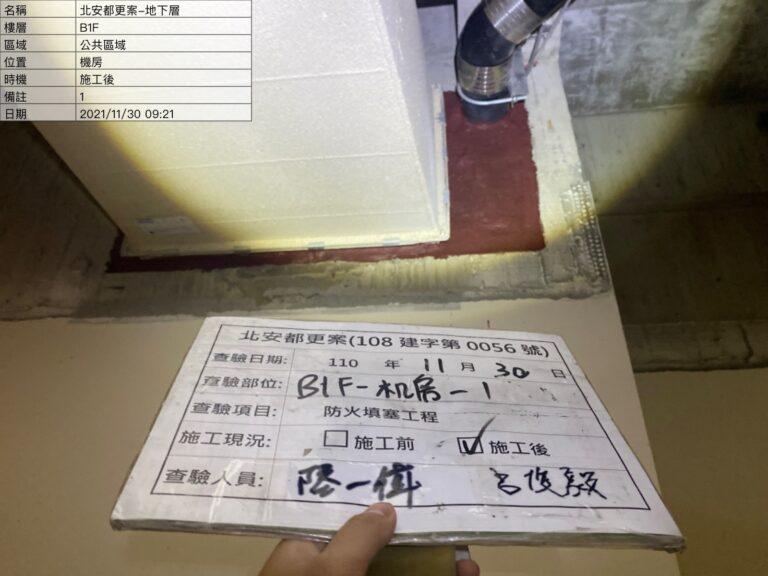 名稱 北安都更案-地下層
樓層 B1F
區域 公共區域
位置 機房
時機 施工後
備註 1
日期 2021/11/30 09:21
北安都更案(108 建字第 0056 號)
查驗日期: 110 年 11 月 30 日
查驗部位: B1F-机房-1
查驗項目: 防火填塞工程
施工現況: □ 施工前 ☑ 施工後
查驗人員: 陸一偉